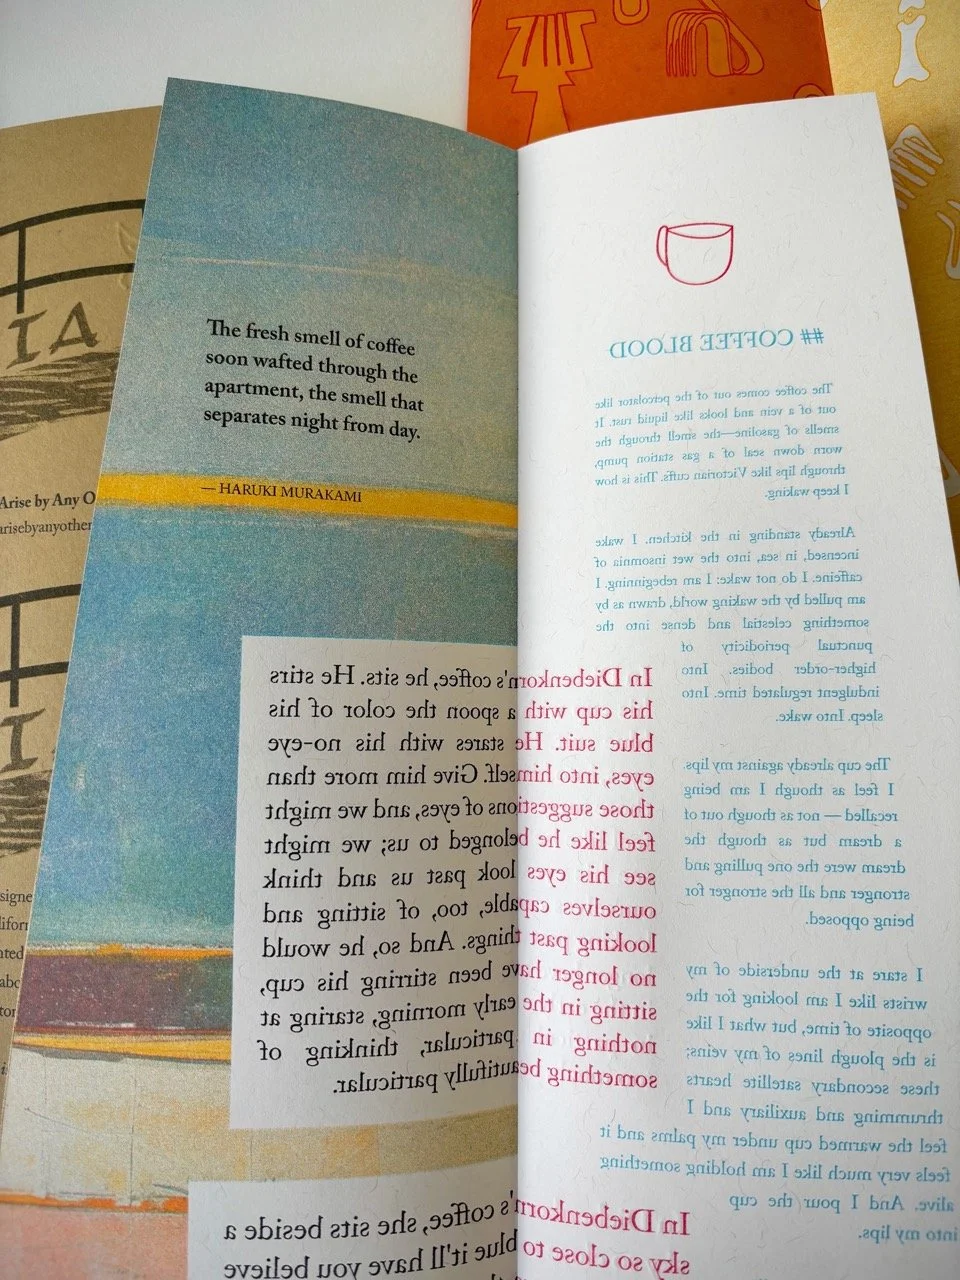 IA
Arise by Any O
arisebyanyother
The fresh smell of coffee
soon wafted through the
apartment, the smell that
separates night from day.
— HARUKI MURAKAMI
In Diebenkorn's coffee, he sits. He stirs
his cup with a spoon the color of his
blue suit. He stares with his no-eye
eyes, into himself. Give him more than
those suggestions of eyes, and we might
feel like he belonged to us; we might
see his eyes look past us and think
ourselves capable, too, of sitting and
looking past things. And so, he would
no longer have been stirring his cup,
sitting in the early morning, staring at
nothing in particular, thinking of
something beautifully particular.
In Diebenkorn's coffee, she sits beside a
sky so close to blue it'll have you believe
## COFFEE BLOOD
The coffee comes out of the percolator like
out of a vein and looks like liquid rust. It
smells of gasoline—the smell through the
worn down seal of a gas station pump,
through lips like Victorian cuffs. This is how
I keep waking.
Already standing in the kitchen. I wake
incensed, in sea, into the wet insomnia of
caffeine. I do not wake: I am rebeginning. I
am pulled by the waking world, drawn as by
something celestial and dense into the
punctual periodicity of
higher-order bodies. Into
indulgent regulated time. Into
sleep. Into wake.
The cup already against my lips.
I feel as though I am being
recalled — not as though out of
a dream but as though the
dream were the one pulling and
stronger and all the stronger for
being opposed.
I stare at the underside of my
wrists like I am looking for the
opposite of time, but what I like
is the plough lines of my veins;
these secondary satellite hearts
thrumming and auxiliary and I
feel the warmed cup under my palms and it
feels very much like I am holding something
alive. And I pour the cup
into my lips.